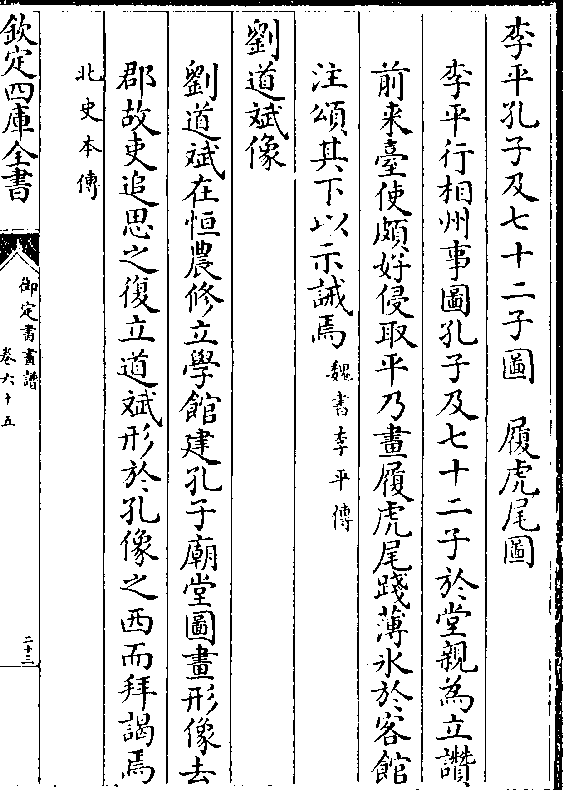 李平孔子及七十二子圖　履虎尾圖
李平行相州事圖孔子及七十二子於堂親為立讚
前来臺使頗好侵取平乃畫履虎尾踐薄氷於客館
注頌其下以示誡焉魏書李平傳
劉道斌像
劉道斌在恒農修立學館建孔子廟堂圖畫形像去
郡故吏追思之復立道斌形於孔像之西而拜謁焉
北史本傳
欽定四庫全書
御定書畫譜
卷六十五
二十三